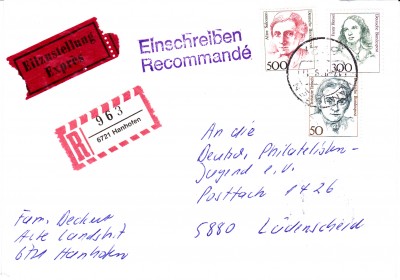 Eilzustellung
Exprès
Einschreiben
Recommandé
500
300
50
R
963
6721 Hanhofen
An die
Deutsche Philatelisten-
Jugend e.V.
Postfach 1426
5880 Lüdenscheid
Fam.
Alte Landstr. 7
6721 Hanhofen